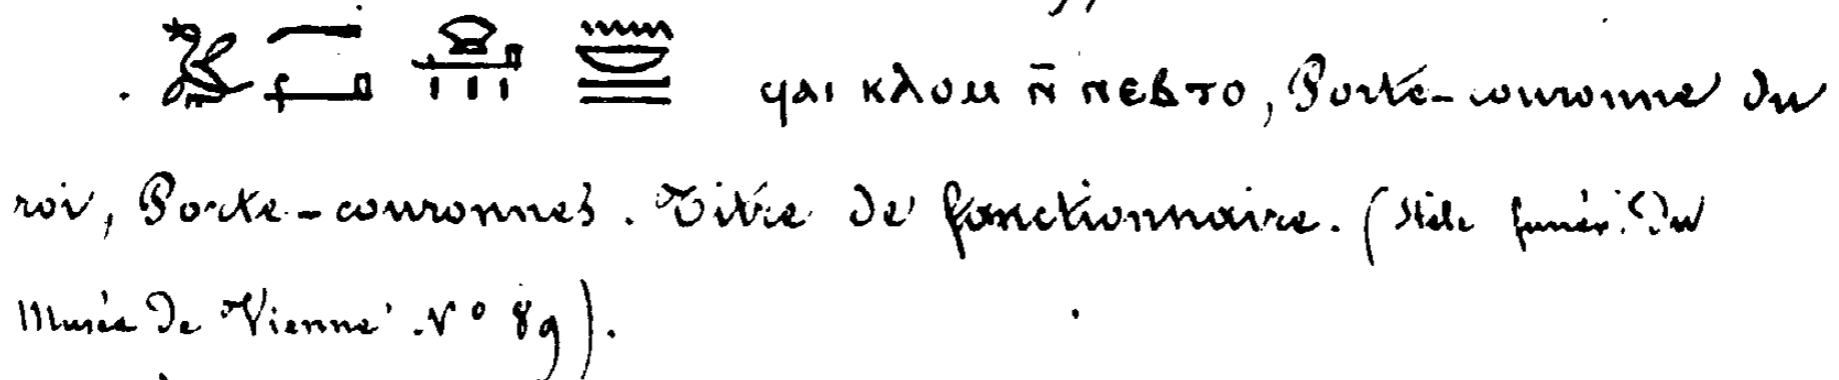 ϥⲁⲓ ⲕⲗⲟⲙ ⲛ̄ ⲛⲉⲃⲧⲟ, Porte-couronne du
roi, Porte-couronnes. Titre de fonctionnaire. (Stèle funér. du
Musée de Vienne. N° 89).